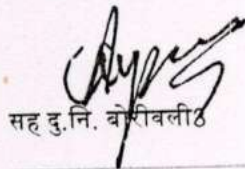 सह दु.नि. बोरीवली8